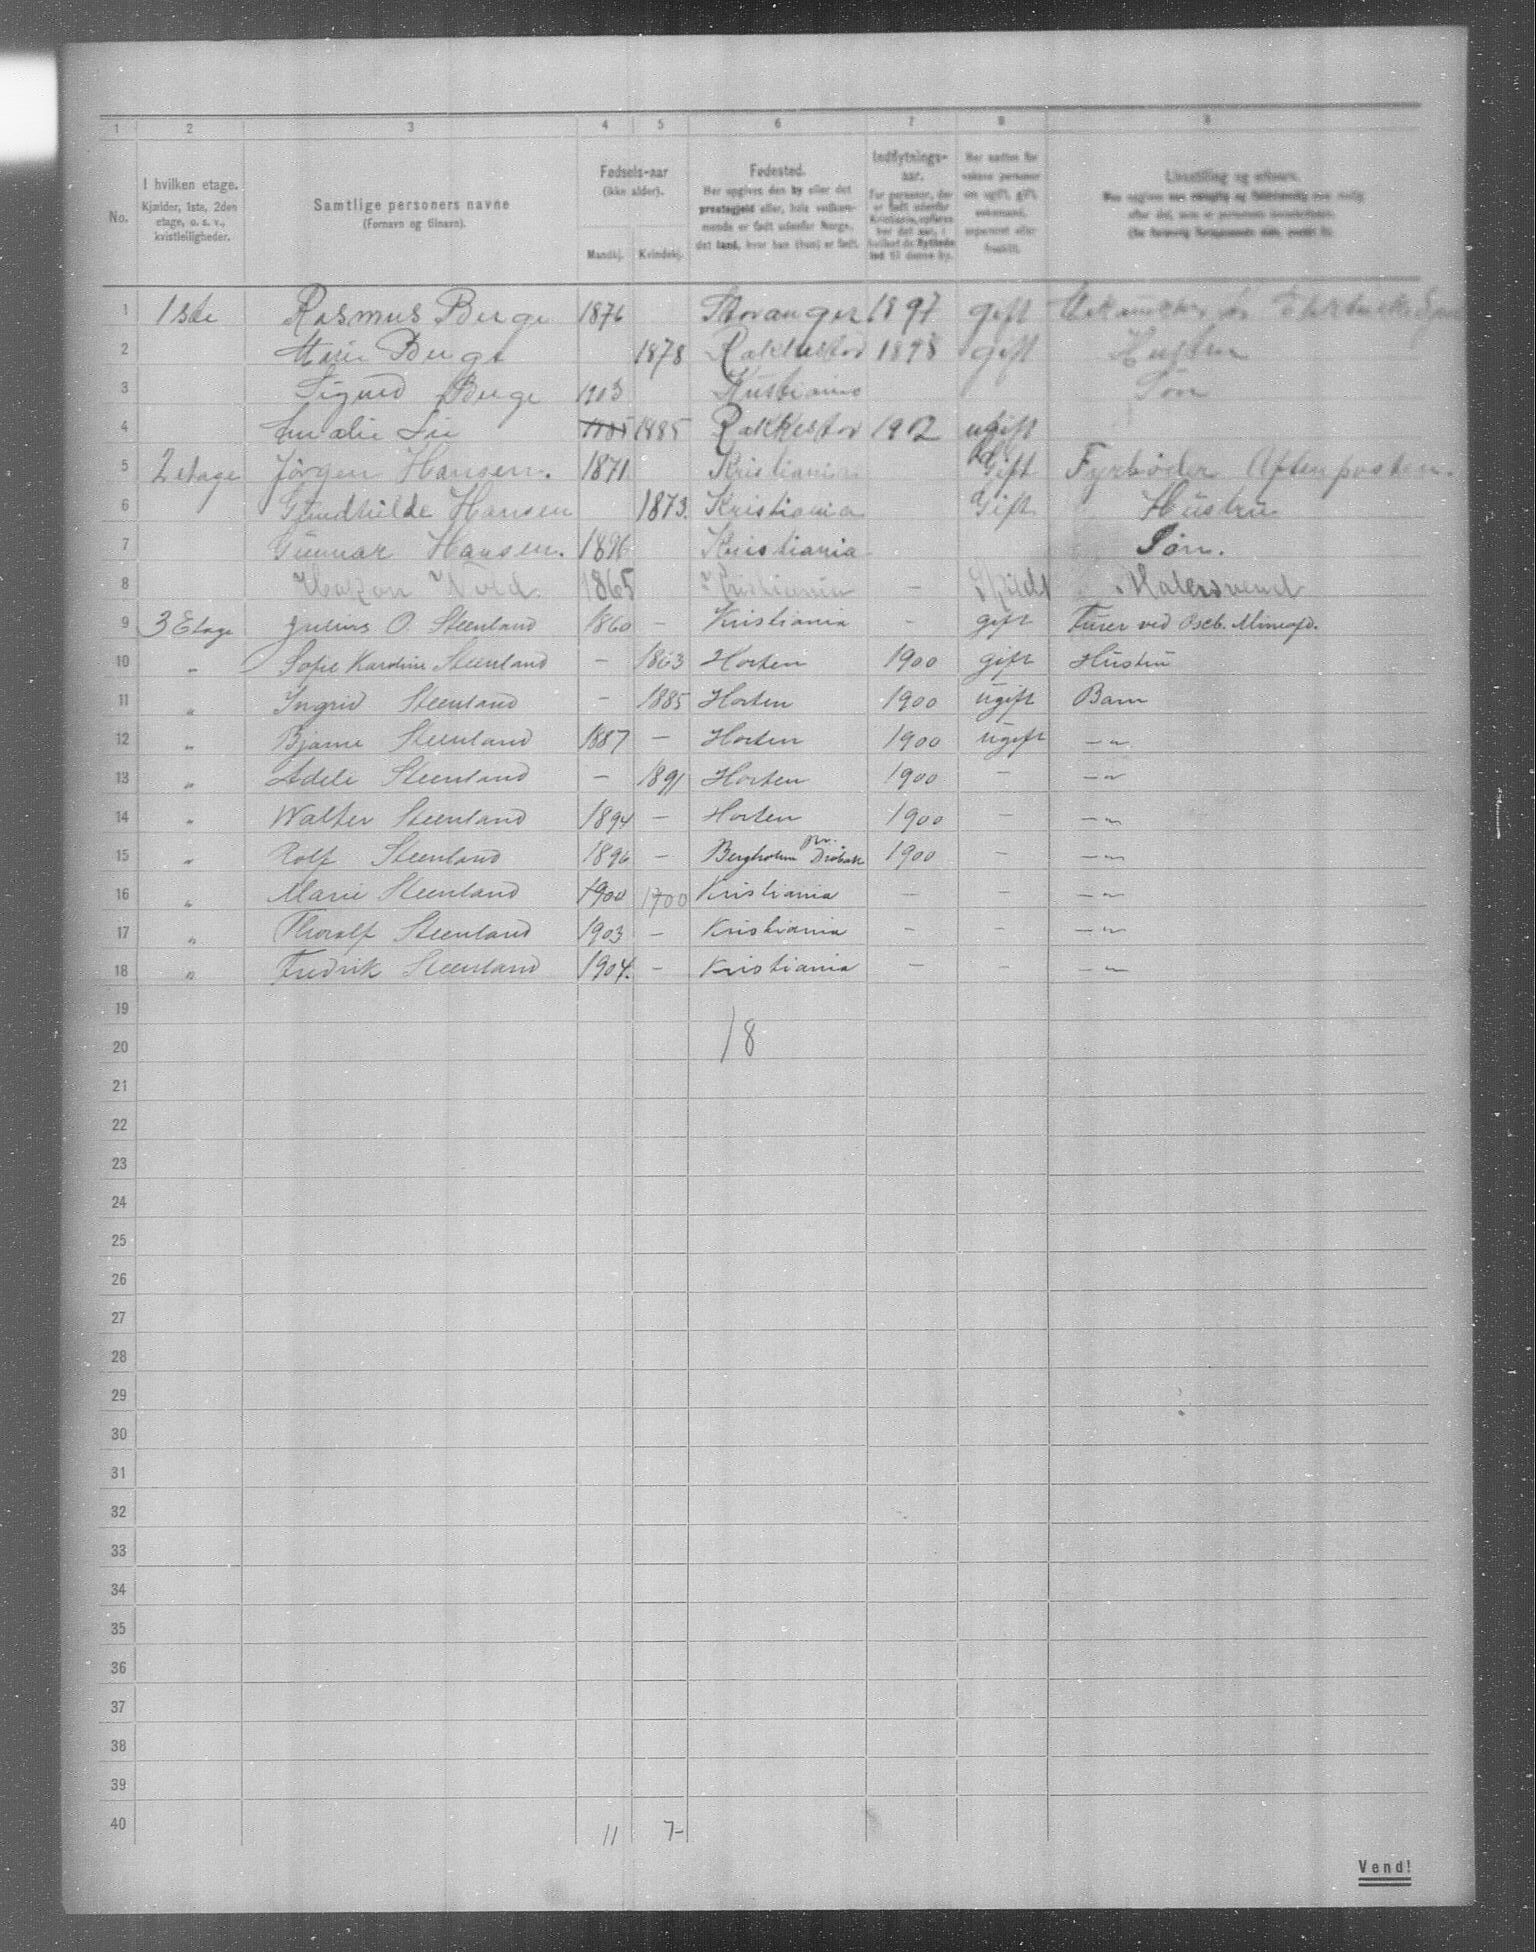 1 2 3 4 5 6 7 8 9
No. I hvilken etage. Kjælder, 1ste, 2den etage, o. s. v., kvistleiligheder. Samtlige personers navne (Fornavn og tilnavn). Fødsels-aar (ikke alder). Mandkj. Kvindekj. Fødested. Her opgives den by eller det præstegjeld eller, hvis vedkommende er født udenfor Norge, det land, hvor han (hun) er født. Indflytnings-aar. For personer, der er født udenfor Kristiania, opføres her det aar, i hvilket de flyttede ind til denne by.
1 1ste Rasmus Berge 1876 Stavanger 1897 gift
2 Marie Berge 1878 Rakkestad 1898 gift Hustru
3 Sigurd Berge 1903 Kristiania Søn
4 Amalie Lie 1885 1885 Rakkestad 1902 ugift
5 2 etage Jörgen Hansen. 1871 Kristiania Gift Fyrbøder Aftenposten.
6 Gundhilde Hansen 1873. Kristiania Gift Hüstrü
7 Gunnar Hansen. 1896 Kristiania Søn.
8 Haakon 1865 Kristiania – Skildt Malersvend
9 3 Etage Julius O. Steenland 1860 – Kristiania – gift Furer ved
10 " Sofie Karoline Steenland – 1863 Horten 1900 gift Hüstrü
11 " Ingrid Steenland – 1885 Horten 1900 ugift Barn
12 " Bjarne Steenland 1887 – Horten 1900 ugift – " –
13 " Adele Steenland – 1891 Horten 1900 – – " –
14 " Walter Steenland 1894 – Horten 1900 – – " –
15 " Rolf Steenland 1896 – Bergholm pr. Drøbak 1900 – – " –
16 " Marie Steenland 1900 1900 Kristiania – – – " –
17 " Thoralf Steenland 1903 – Kristiania – – – " –
18 " Fredrik Steenland 1904. – Kristiania – – – " –
19
18
20
21
22
23
24
25
26
27
28
29
30
31
32
33
34
35
36
37
38
39
40 11 7-
Vend!